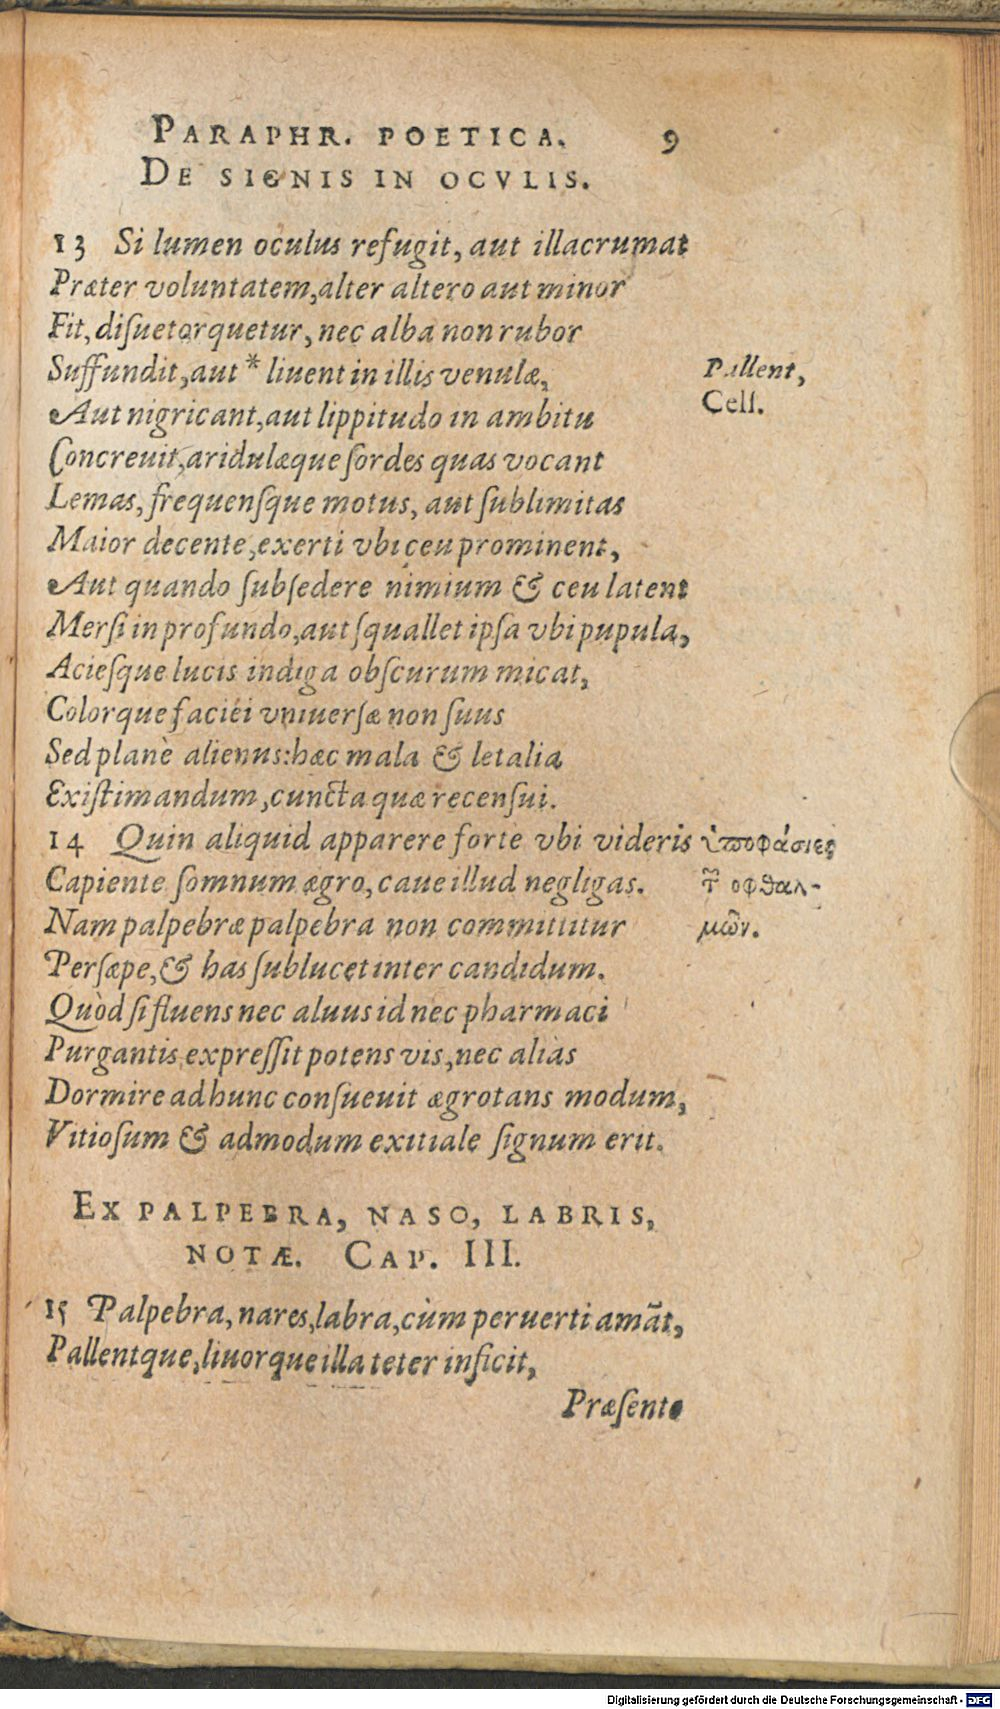 PARAPHR. POETICA. 9
DE SIGNIS IN OCVLIS.
13 Si lumen oculus refugit, aut illacrumat
Præter voluntatem, alter altero aut minor
Fit, diſuetorquetur, nec alba non rubor
Suffundit, aut * liuent in illis venulæ,
Pallent,
Celſ.
Aut nigricant, aut lippitudo in ambitu
Concreuit, aridulæque ſordes quas vocant
Lemas, frequenſque motus, aut ſublimitas
Maior decente, exerti vbi ceu prominent,
Aut quando ſubſedere nimium & ceu latent
Merſi in profundo, aut ſquallet ipſa vbi pupula,
Acieſque lucis indiga obſcurum micat,
Colorque faciei vniuerſæ non ſuus
Sed planè alienus: hæc mala & letalia
Exiſtimandum, cuncta quæ recenſui.
14 Quin aliquid apparere forte vbi videris
Capiente ſomnum ægro, caue illud negligas.
Nam palpebræ palpebra non committitur
ὑποφάσιες
τῶν οφθαλ-
μῶν.
Perſæpe, & has ſublucet inter candidum.
Quòd ſi fluens nec aluus id nec pharmaci
Purgantis expreſſit potens vis, nec aliàs
Dormire ad hunc conſueuit ægrotans modum,
Vitioſum & admodum exitiale ſignum erit.
EX PALPEBRA, NASO, LABRIS,
NOTÆ. CAP. III.
15 Palpebra, nares, labra, cùm peruerti amãt,
Pallentque, liuorque illa teter inficit,
Præſente
Digitalisierung gefördert durch die Deutsche Forschungsgemeinschaft - DFG